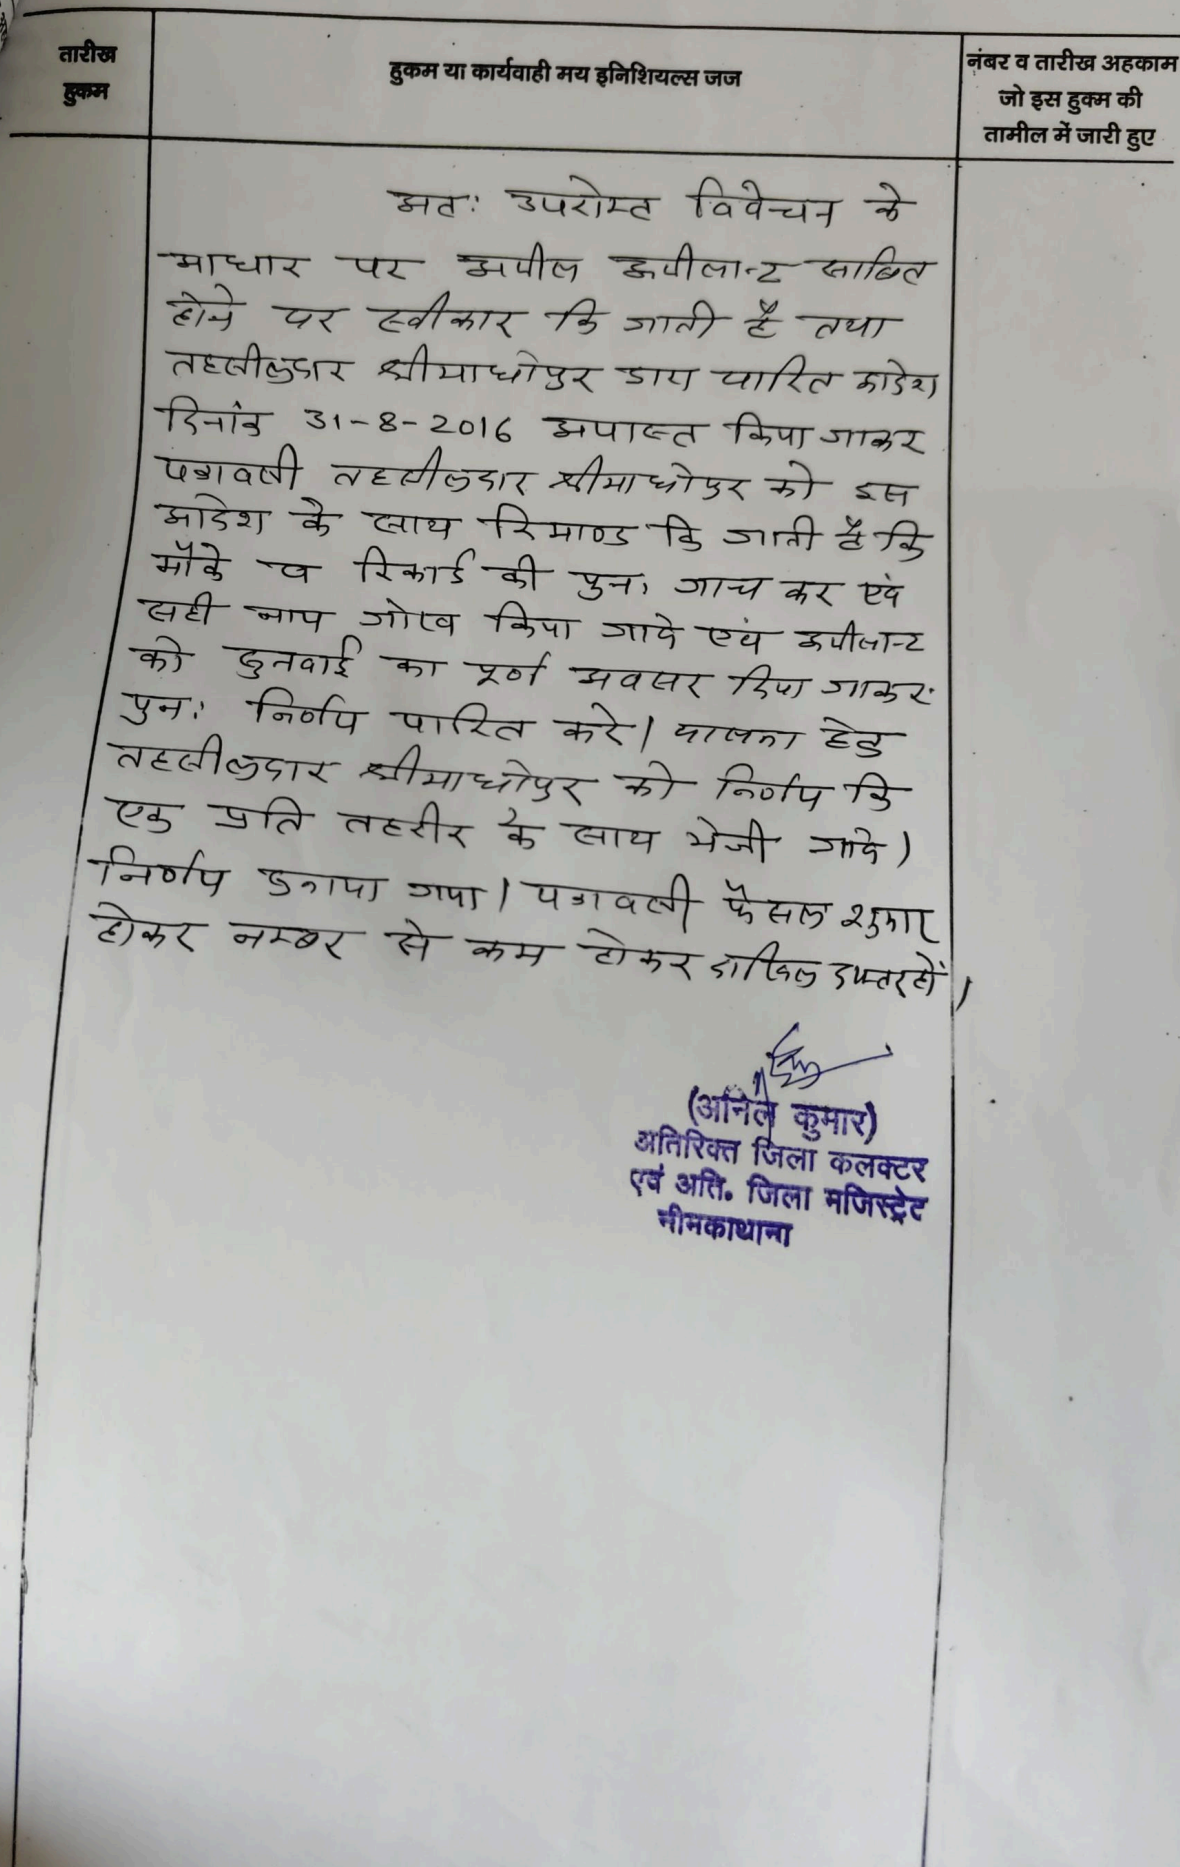 तारीख
हुकम
हुकम या कार्यवाही मय इनिशियल्स जज
नंबर व तारीख अहकाम
जो इस हुक्म की
तामील में जारी हुए
अतः उपरोक्त विवेचन के
आधार पर अपील अपीलान्ट साबित
होने पर स्वीकार कि जाती है तथा
तहसीलदार श्रीमाधोपुर द्वारा पारित आदेश
दिनांक 31-8-2016 अपास्त किया जाकर
पत्रावली तहसीलदार श्रीमाधोपुर को इस
आदेश के साथ रिमाण्ड कि जाती है कि
मौके व रिकार्ड की पुनः जाच कर एवं
सही नाप जोख किया जावे एवं अपीलान्ट
को सुनवाई का पूर्ण अवसर दिया जाकर
पुनः निर्णय पारित करे। पालना हेतु
तहसीलदार श्रीमाधोपुर को निर्णय कि
एक प्रति तहरीर के साथ भेजी जावे।
निर्णय सुनाया गया। पत्रावली फैसल शुमार
होकर नम्बर से कम होकर दाखिल दफ्तर हो।
(अनिल कुमार)
अतिरिक्त जिला कलक्टर
एवं अति. जिला मजिस्ट्रेट
नीमकाथाना